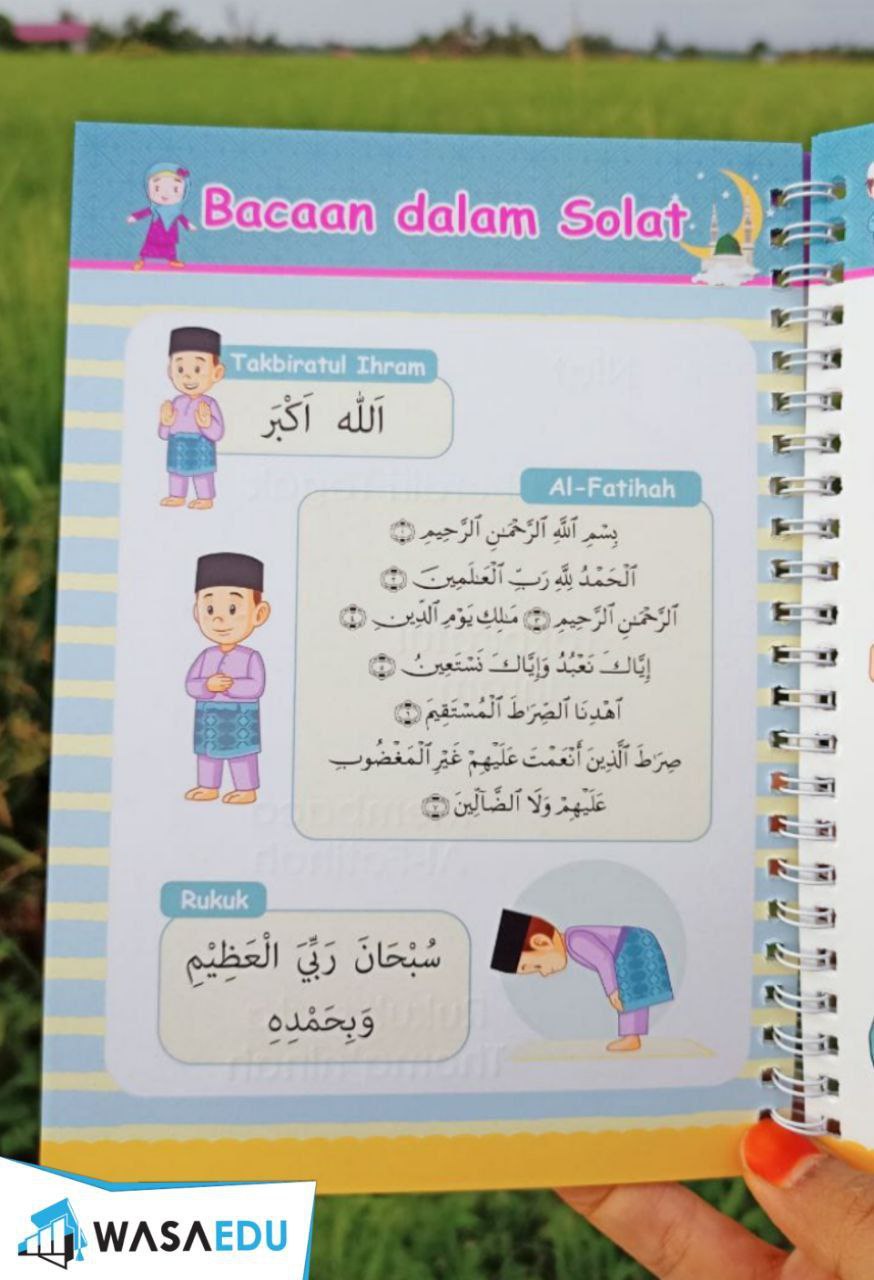 Bacaan dalam Solat
Takbiratul Ihram
اَللّٰه اَكْبَر
Al-Fatihah
بِسْمِ ٱللَّهِ ٱلرَّحْمَـٰنِ ٱلرَّحِيمِ ١
ٱلْحَمْدُ لِلَّهِ رَبِّ ٱلْعَـٰلَمِينَ ٢
ٱلرَّحْمَـٰنِ ٱلرَّحِيمِ ٣ مَـٰلِكِ يَوْمِ ٱلدِّينِ ٤
إِيَّاكَ نَعْبُدُ وَإِيَّاكَ نَسْتَعِينُ ٥
ٱهْدِنَا ٱلصِّرَٰطَ ٱلْمُسْتَقِيمَ ٦
صِرَٰطَ ٱلَّذِينَ أَنْعَمْتَ عَلَيْهِمْ غَيْرِ ٱلْمَغْضُوبِ
عَلَيْهِمْ وَلَا ٱلضَّآلِّينَ ٧
Rukuk
سُبْحَانَ رَبِّيَ الْعَظِيْمِ
وَبِحَمْدِهِ
WASAEDU